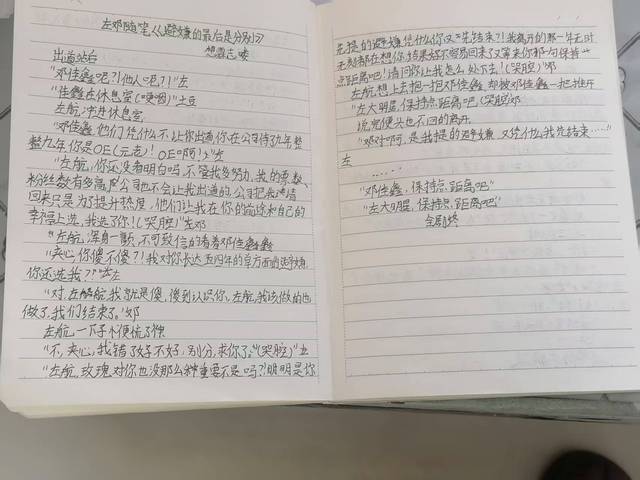 左邓随笔《避嫌的最后是分别》
想露志喽
出道站台
"邓佳鑫呢?!他人呢?!"左
"佳鑫在休息室(哽咽)"土豆
左航冲进休息室
"邓佳鑫他们凭什么不让你出道你在公司待了九年整
整九年你是OE(元老)!OE啊!"左
"左航,你还没看明白吗,不管我多努力,我的票数、
粉丝数有多高公司也不会让我出道的,公司把我请
回来只是为了提升热度,他们让我在你的前途和自己的
幸福上选,我选了你!(哭腔)"邓
"左航,浑身一颤,不可致信的看着邓佳鑫
"夹心,你傻不傻?!我对你长达五四年的单方面的避嫌,
你还选我??"左
"对,左航,我就是傻,傻到认识你,左航,我该做的也
做了,我们结束了。"邓
左航,一下子便慌了神
"不,夹心,我错了好不好,别分,求你了。"(哭腔)"左
"左航,玫瑰对你也没那么种重要不是吗?!明明是你
先提的避嫌凭什么你又先结束?!我离开的那一年无时
无刻都在想你,结果好不容易回来了又带来你那句保持
点距离吧!请问你让我怎么处下去!(哭腔)"邓
左航想上去抱一抱邓佳鑫却被邓佳鑫一把推开
"左大明星,保持点距离吧(哭腔)邓
说完便头也不回的离开
"邓对啊,是我提的避嫌又凭什么我先结束……"
左
……
"邓佳鑫,保持点距离吧"
"左大明星,保持点距离吧"
全剧终